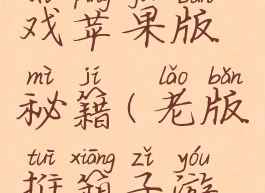 戏苹果版
mì jí lǎo bǎn
秘籍(老版
tuī xiāng zǐ yóu
推箱子游